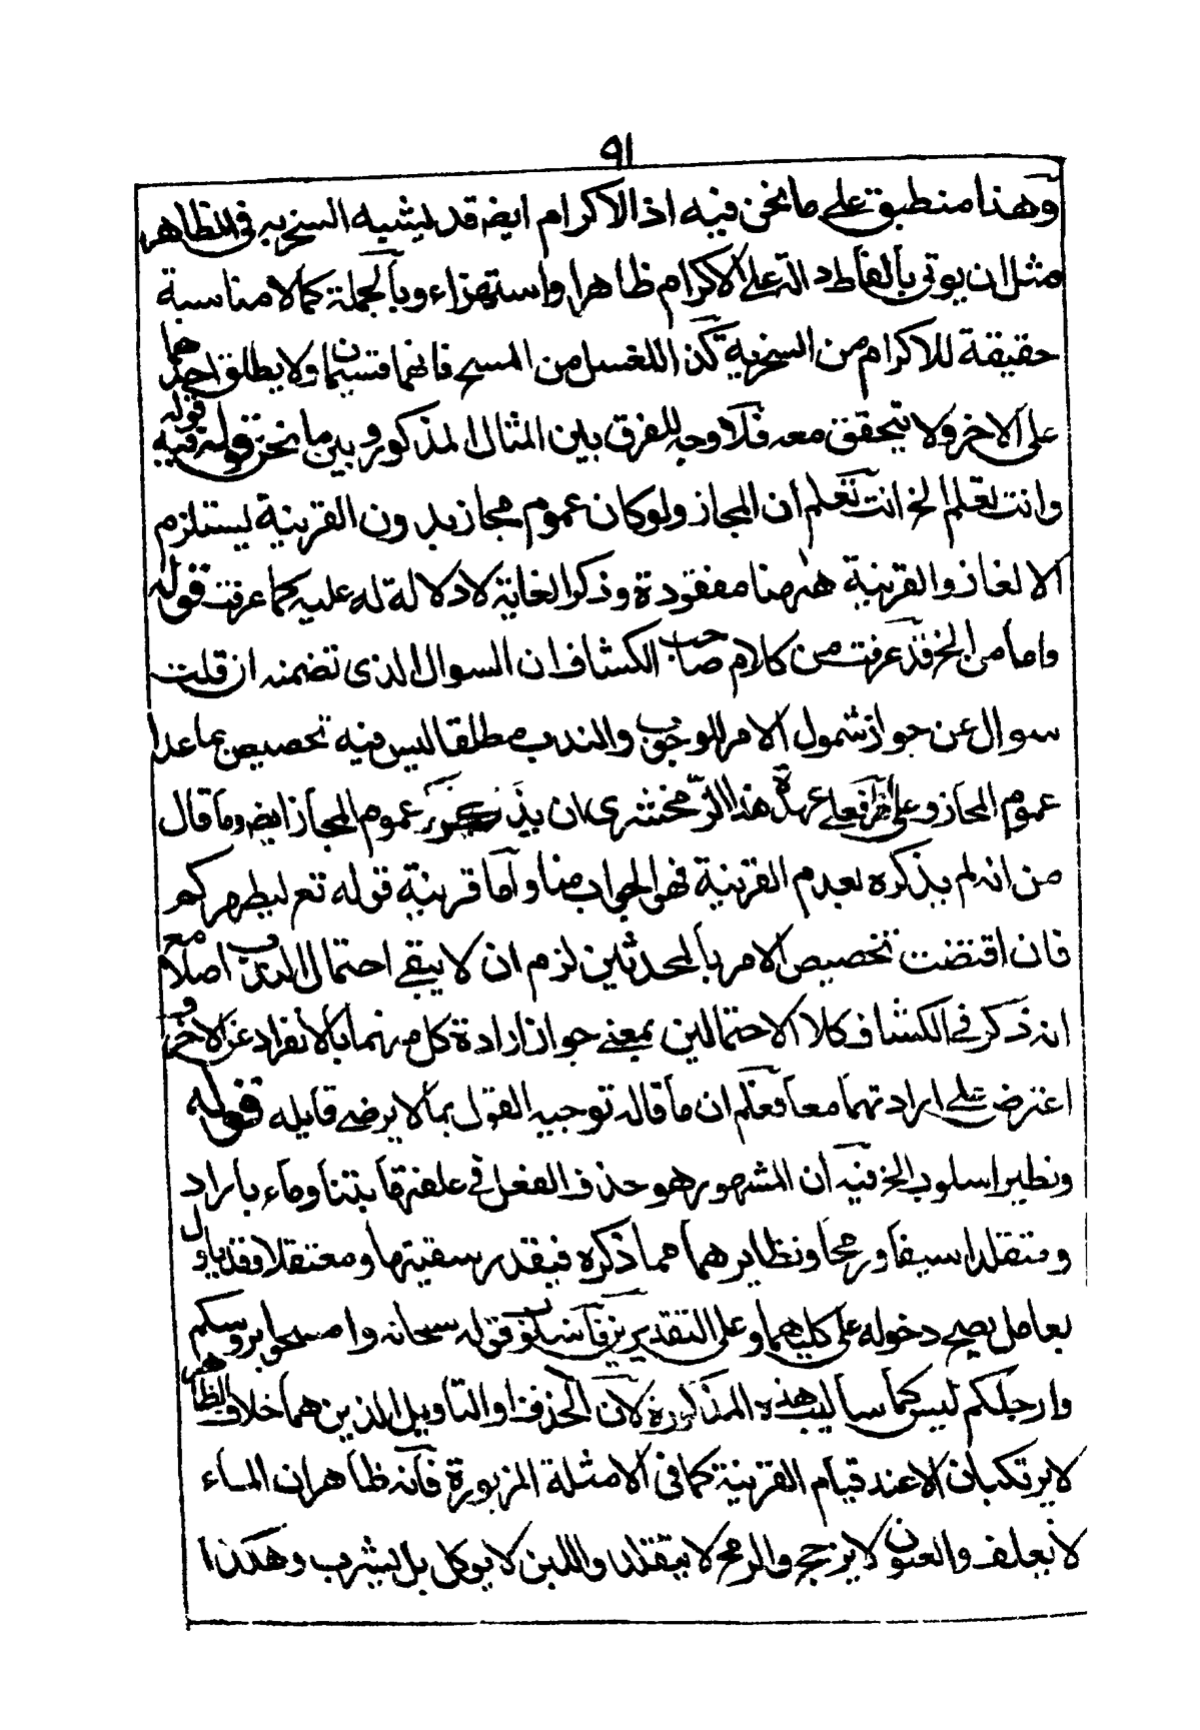 ٩١
وهذا منطبق على ما نحن فيه اذ الاكرام ايضه قد يشبه السخريه فى الظاهر
مثل ان يوتى بالفاظ دالة على الاكرام ظاهرا واستهزاء وبالجملة كما لا مناسبة
حقيقة للاكرام من السخرية كذا للغسل من المسح فانهما قسيمان ولا يطلق احدهما
على الاخر ولا يتحقق معه فلا وجه للفرق بين المثال المذكور وبين ما نحن فيه قوله
وانت تعلم الخ انت تعلم ان المجاز ولو كان عموم مجاز بدون القرينة يستلزم
الالغاز والقرينة ههنا مفقودة وذكر الغاية لا دلالة له عليه كما عرفت قوله
واما من الخ قد عرفت من كلام صاحب الكشاف ان السوال الذى تضمنه ان قلت
سوال عن جواز شمول الامر للوجوب والندب مطلقا ليس فيه تخصيص بما عدا
عموم المجاز وعلى فعلى عهدة هذا الزمخشرى ان عموم المجاز ايضه وما قال
من انه لم يذكره لعدم القرينة فهو الجواب منا واما قرينة قوله تع ليطهركم
فان اقتضت تخصيص الامر بالمحدثين لزم ان لا يبقى احتمال الندب اصلا مع
انه ذكر فى الكشاف كلا الاحتمالين بمعنى جواز ارادة كل منهما بالانفراد عن الاخر و
اعترض على ارادتهما معا فعلم ان ما قاله توجيه القول بما لا يرضى قايله قوله
ونظير اسلوب الخ فيه ان المشهور هو حذف الفعل فى علفتها تبنا وماء باراد
ومتقلدا سيفا ورمحا ونظايرهما مما ذكره فيقدر سقيتها ومعتقلا وقد ياول
بعامل يصح دخوله على كليهما وعلى التقديرين فاسلوب قوله سبحانه وامسحوا بروسكم
وارجلكم ليس كما ساليب هذه المذكورة لان الحذف او التاويل الذين هما خلاف الظاهر
لا يرتكبان الا عند قيام القرينة كما فى الامثلة المزبورة فانه ظاهر ان الماء
لا يعلف والعيون لا يزجج والرمح لا يتقلد واللبن لا يوكل بل يشرب وهكذا